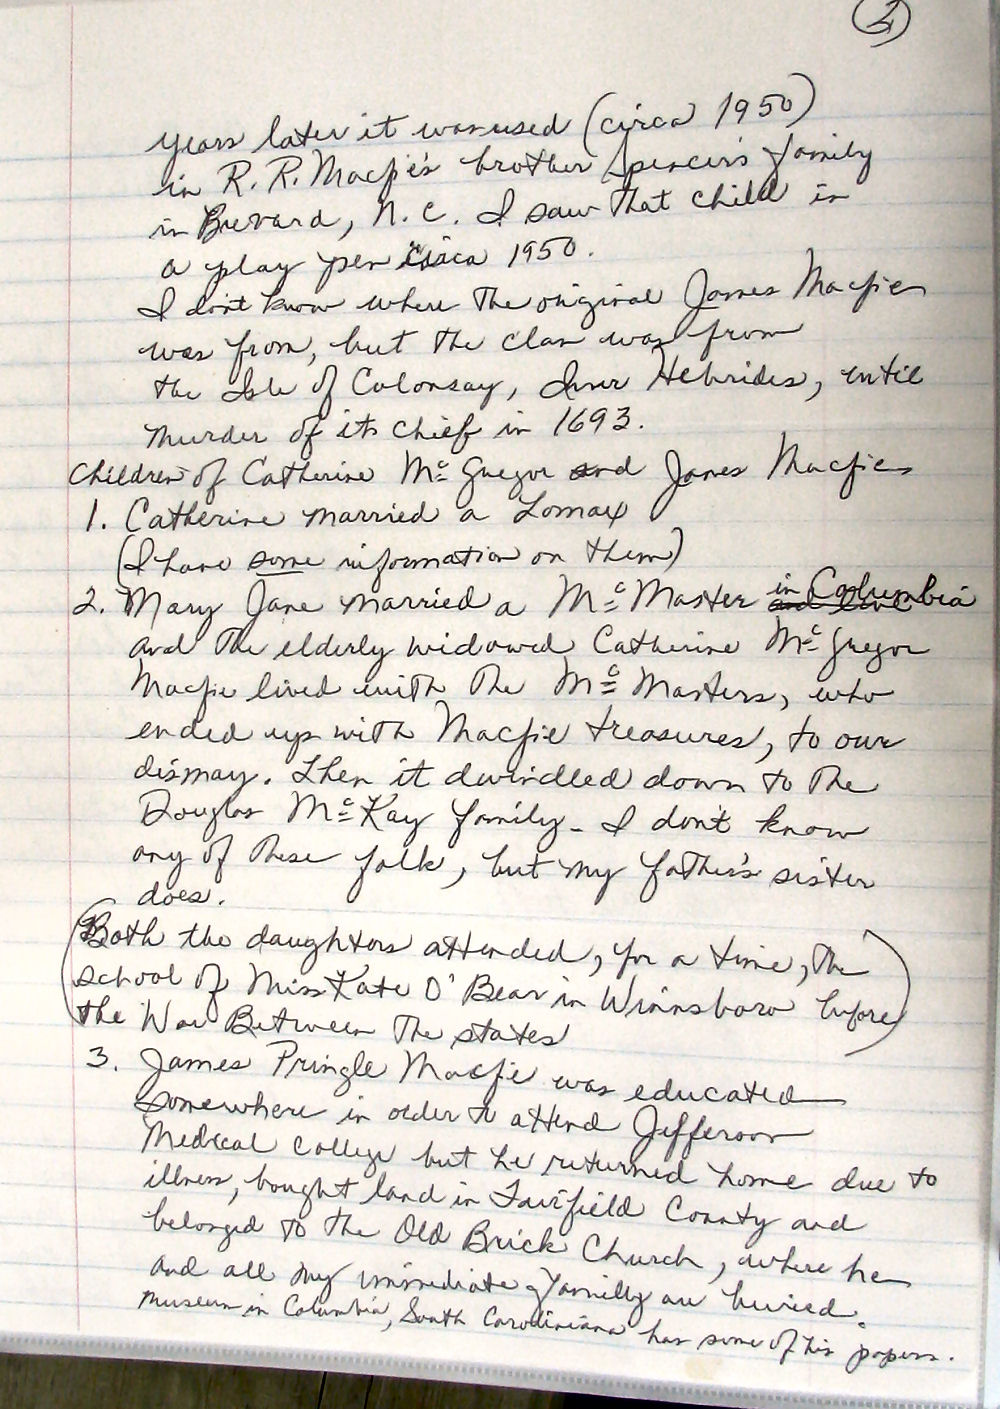 2
years later it was used (circa 1950)
in R. R. Macfie's brother Spencer's family
in Brevard, N. C. I saw that child in
a play pen circa 1950.
I don't know where the original James Macfie
was from, but the clan was from
the Isle of Colonsay, Inner Hebrides, until
murder of its chief in 1693.
Children of Catherine McGregor and James Macfie
1. Catherine married a Lomax
(I have some information on them)
2. Mary Jane married a McMaster in Columbia
and the elderly widowed Catherine McGregor
Macfie lived with the McMasters, who
ended up with Macfie treasures, to our
dismay. Then it dwindled down to the
Douglas McKay family - I don't know
any of these folk, but my father's sister
does.
(Both the daughters attended, for a time, the
school of Miss Kate O'Bear in Winnsboro before
the War Between the States)
3. James Pringle Macfie was educated
somewhere in order to attend Jefferson
Medical College but he returned home due to
illness, bought land in Fairfield County and
belonged to the Old Brick Church, where he
and all my immediate family are buried.
Museum in Columbia, South Caroliniana has some of his papers.